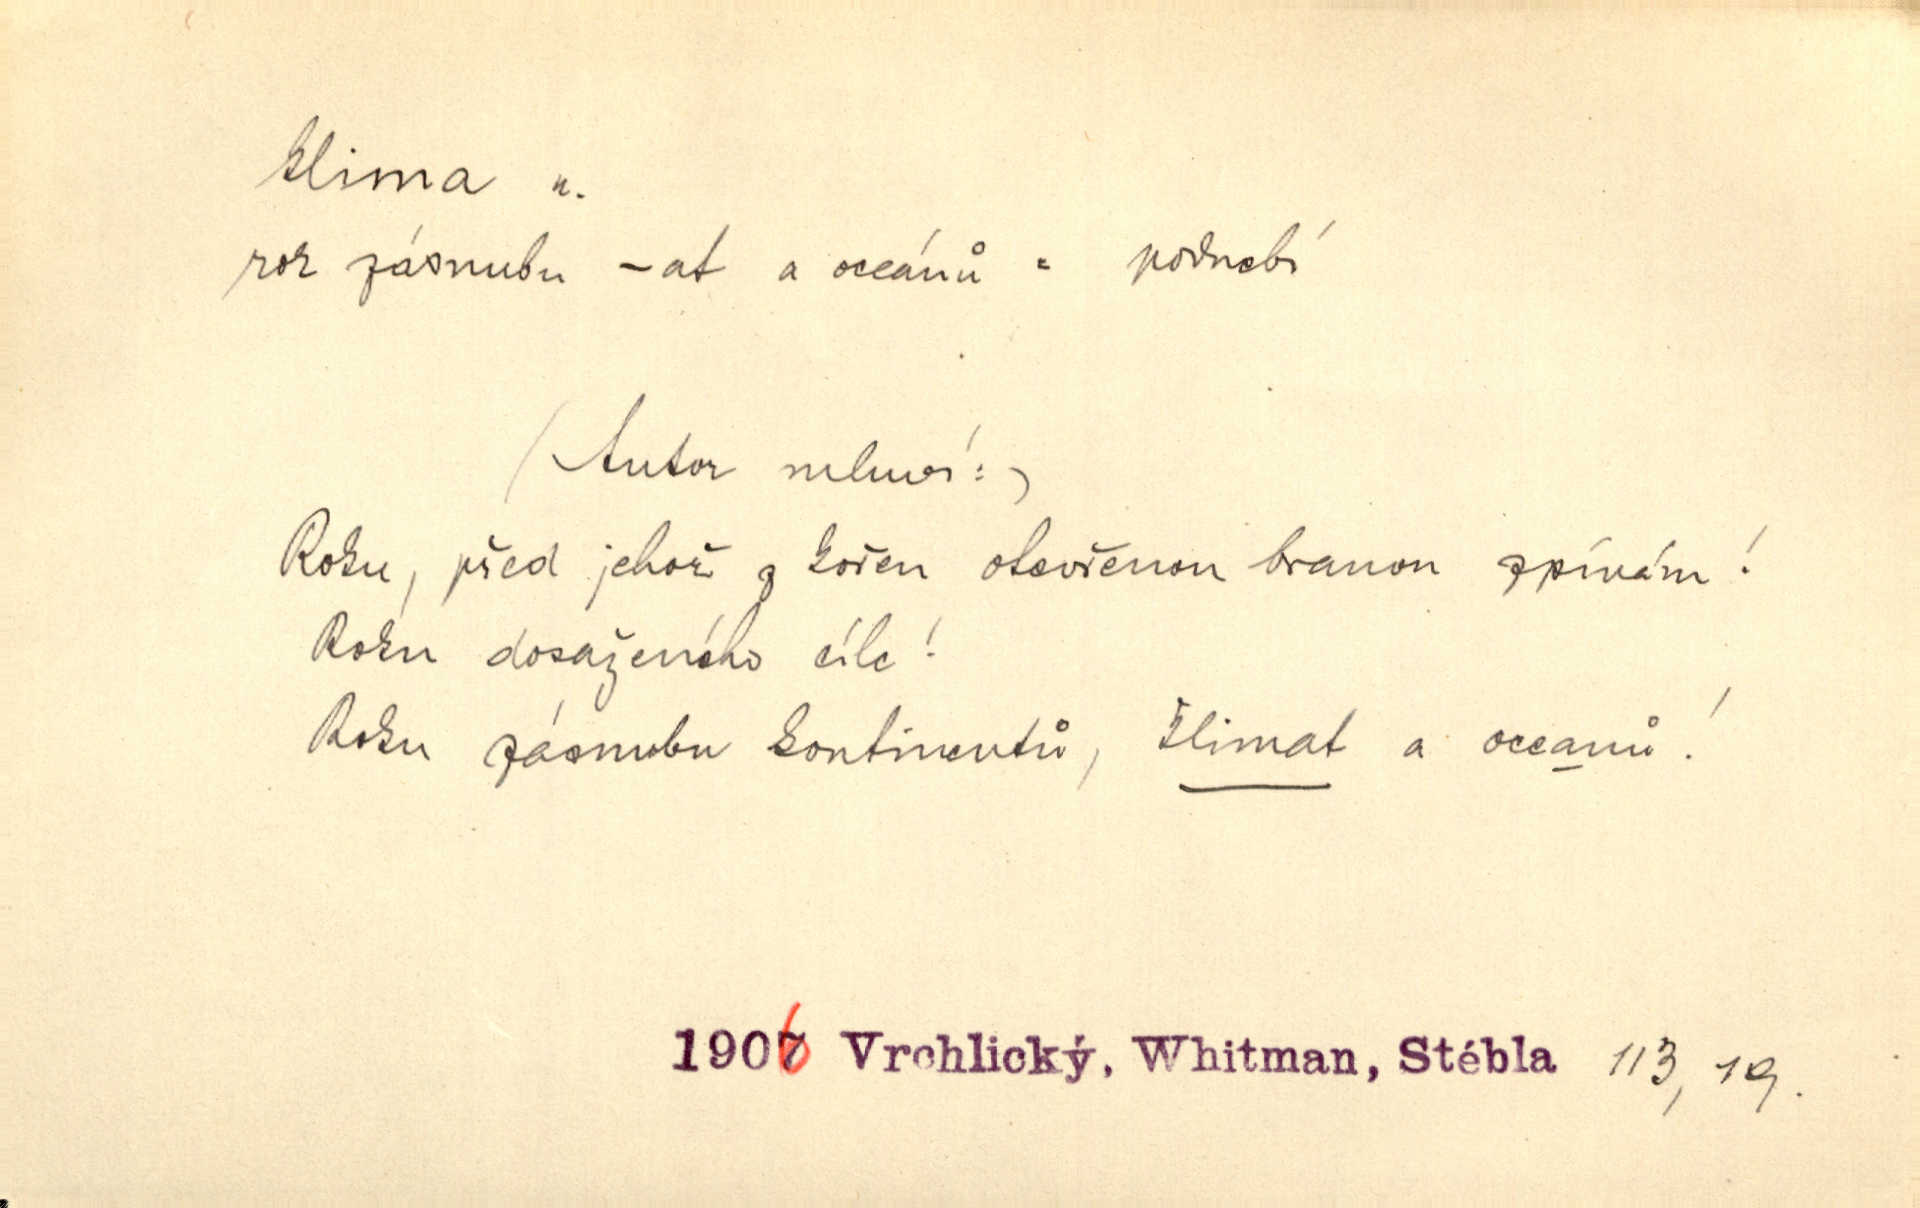 klima n.
rok zásnubu -at a oceánů = podnebí
(Autor mluví:)
Roku, před jehož kořen otevřenou branou zpívám!
Roku dosaženého cíle!
Roku zásnubu kontinentů, klimat a oceanů!
1906 Vrchlický, Whitman, Stébla 113, 19.